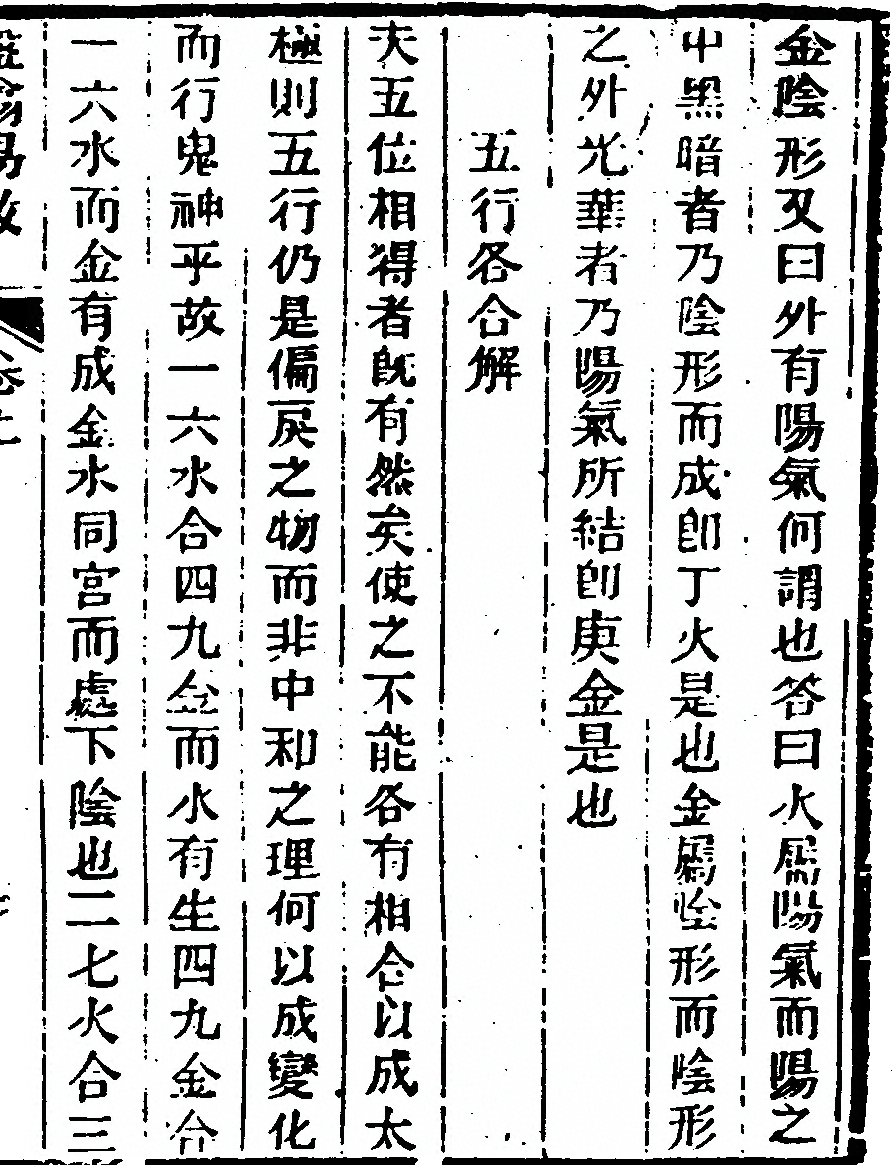 金陰形又曰外有陽氣何謂也答曰火屬陽氣而陽之
中黑暗者乃陰形而成卽丁火是也金屬陰形而陰形
之外光華者乃陽氣所結卽庚金是也
五行各合解
夫五位相得者旣有然矣使之不能各有相合以成太
極則五行仍是偏戾之物而非中和之理何以成變化
而行鬼神乎故一六水合四九金而水有生四九金合
一六水而金有成金水同宮而處下陰也二七火合三